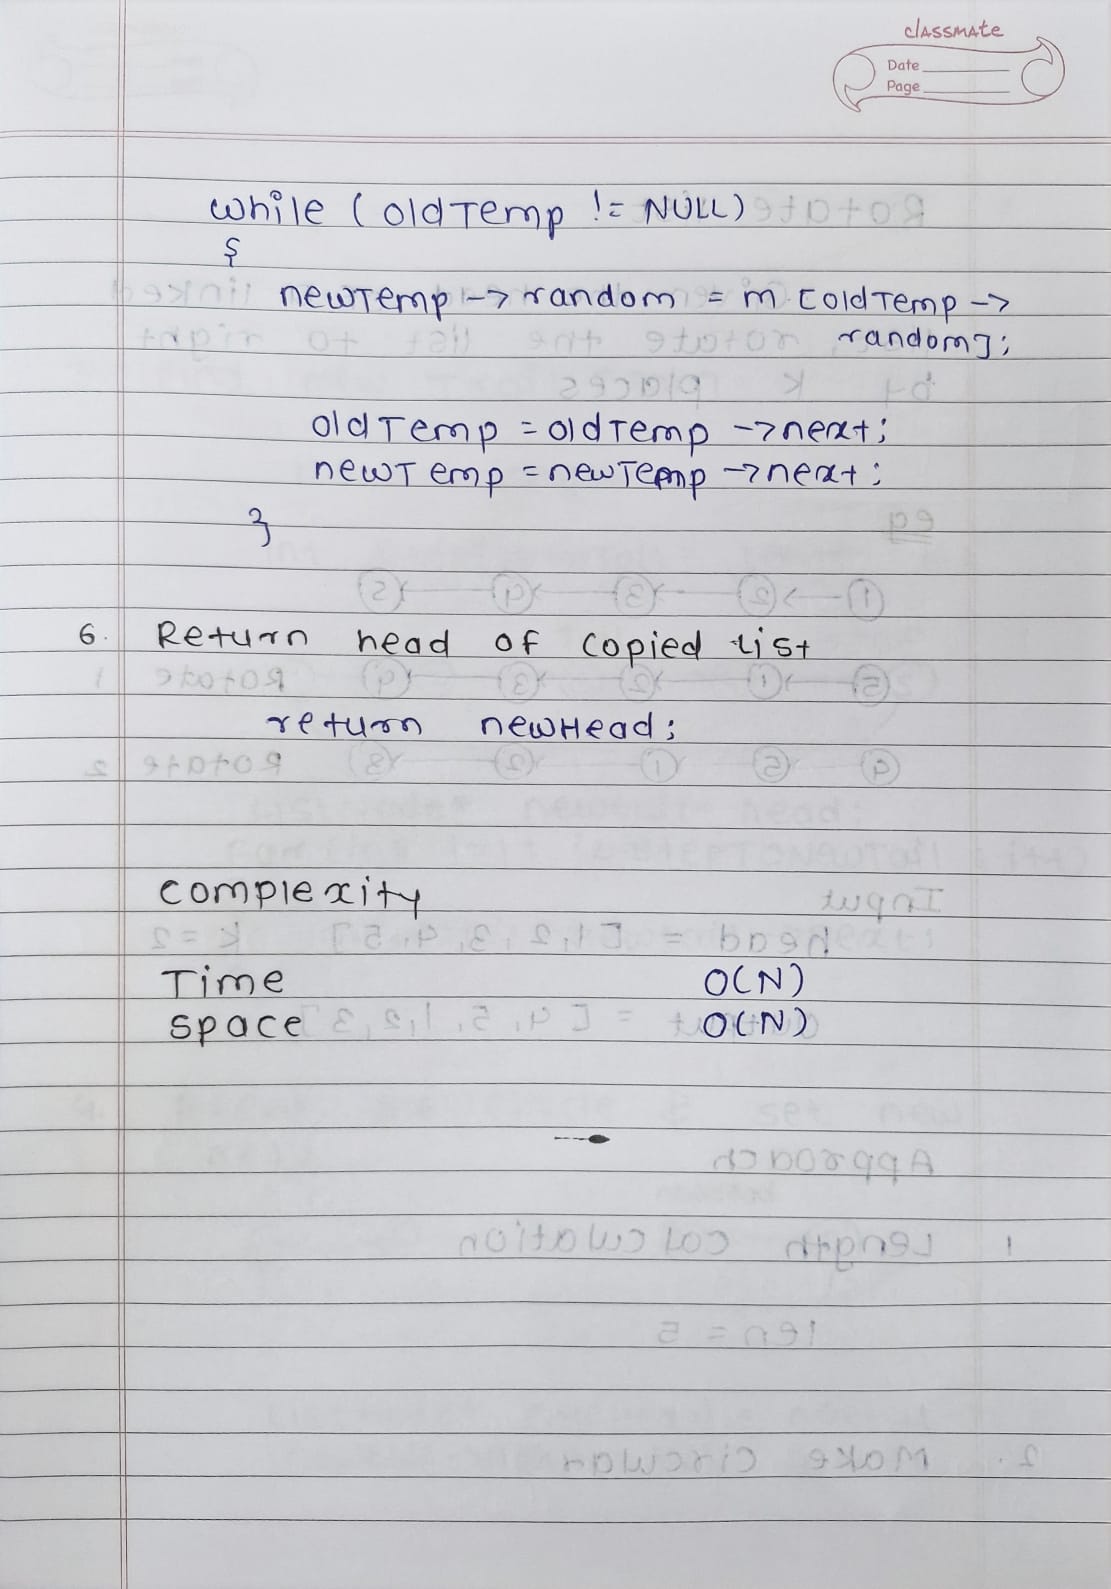 classmate
Date
Page
while (oldTemp != NULL)
{
newTemp -> random = m [oldTemp ->
random];
oldTemp = oldTemp -> next;
newTemp = newTemp -> next;
}
6. Return head of copied list
return newHead;
Complexity
Time O(N)
Space O(N)